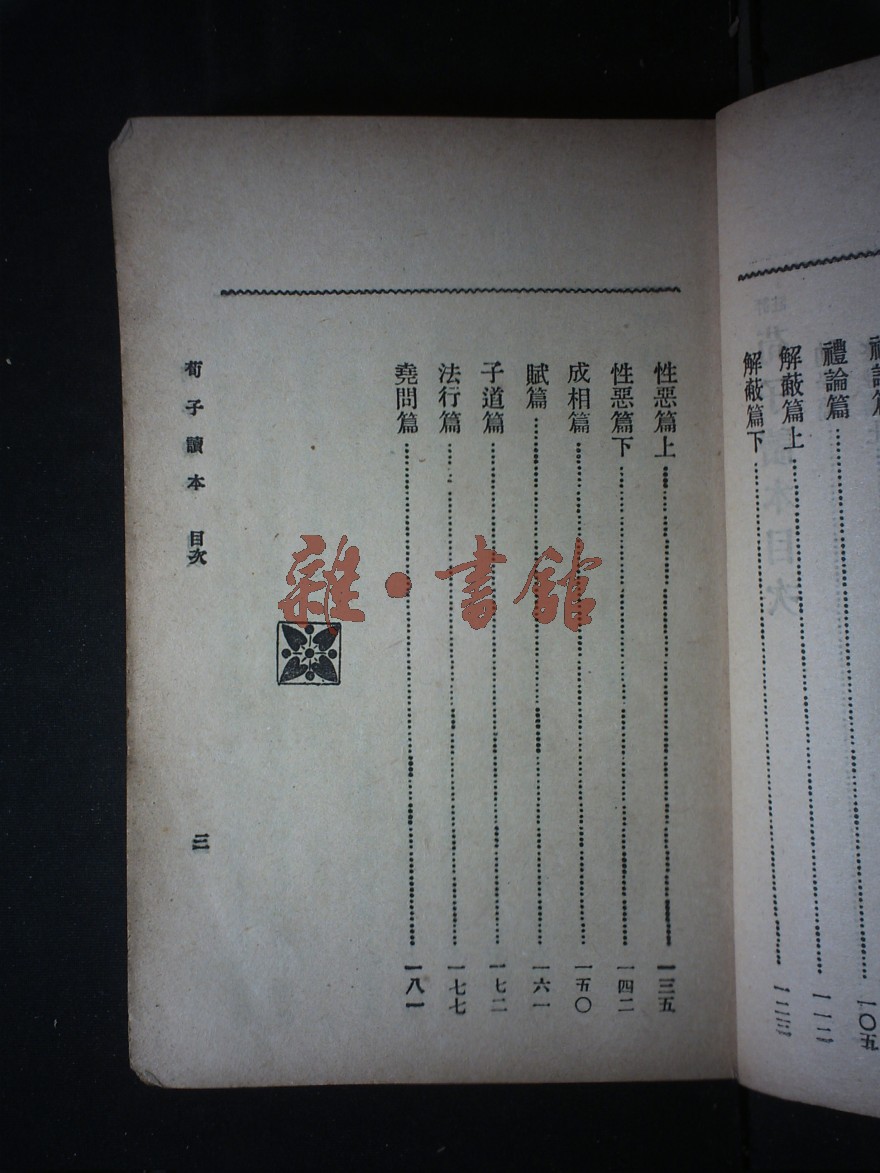 禮論篇……一〇五
解蔽篇上……一一二
解蔽篇下……一二三
性惡篇上……一三五
性惡篇下……一四二
成相篇……一五〇
賦篇……一六一
子道篇……一七二
法行篇……一七七
堯問篇……一八一
荀子讀本 目次 三
雜·書館